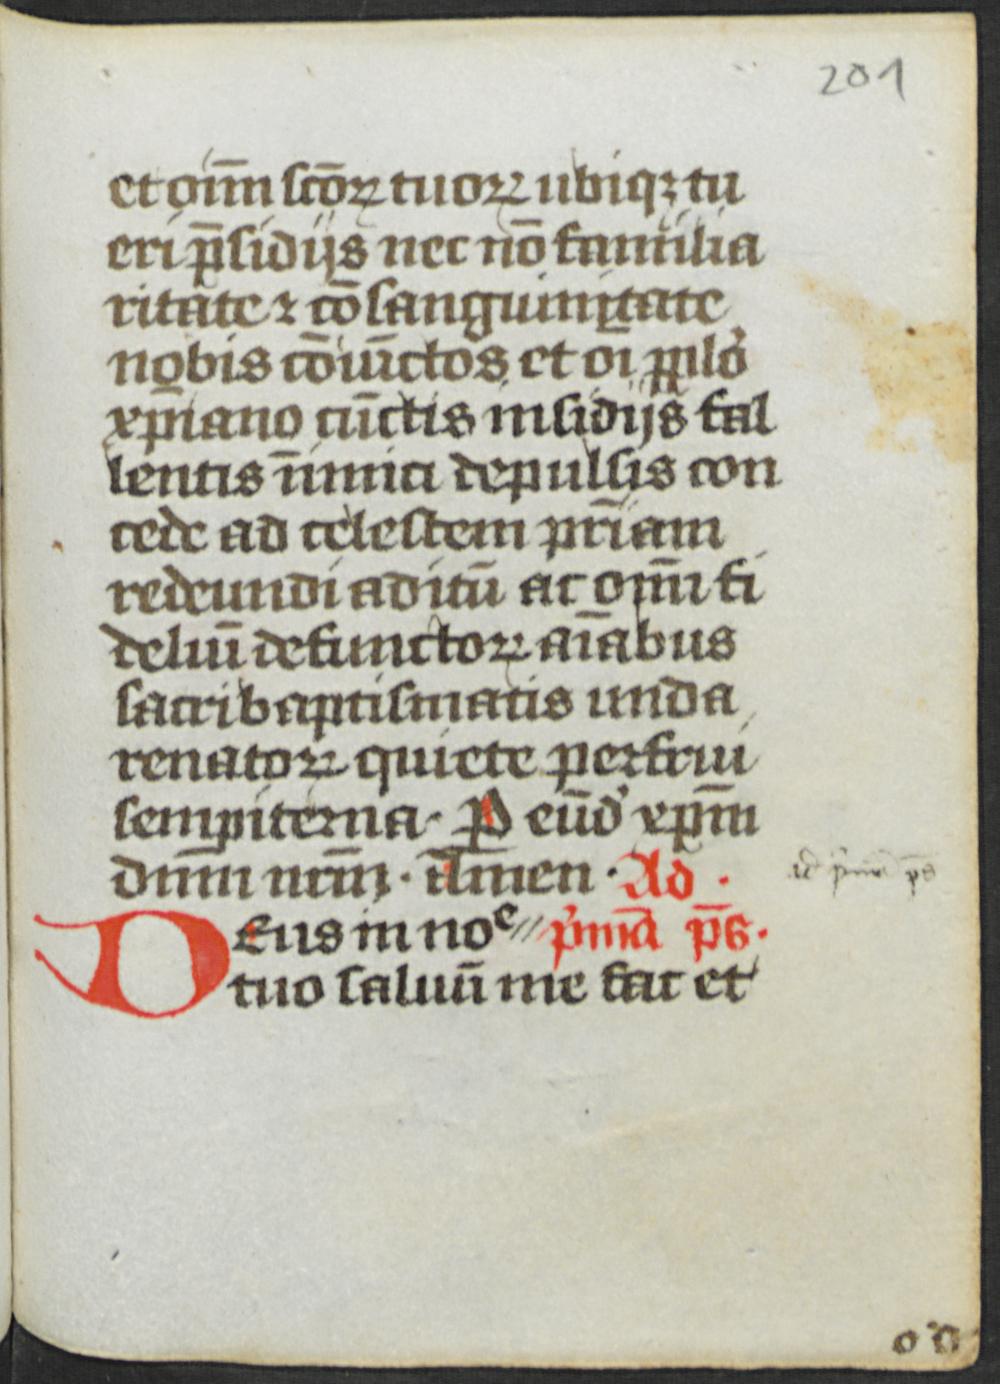 201
et oīm scōꝝ tuoꝝ ubiqꝫ tu
eri p̄sidijs nec nō familia
ritate ⁊ cōsanguinitate
nobis cōiūctos et oī pplo
xp̄iano cūctis insidijs fal
lentis īnimici depulsis con
cede ad celestem pr̄iam
redeundi aditū ac oīm fi
deliū defunctoꝝ aīabus
sacri baptismatis unda
renatoꝝ quiete perfrui
sempiterna. P eūd xp̄m
dnm̄ nrm̄. Amen. Ad.
Deus in noe // pͥmā ps̄.
tuo saluū me fac et
ad pͥmā ps̄